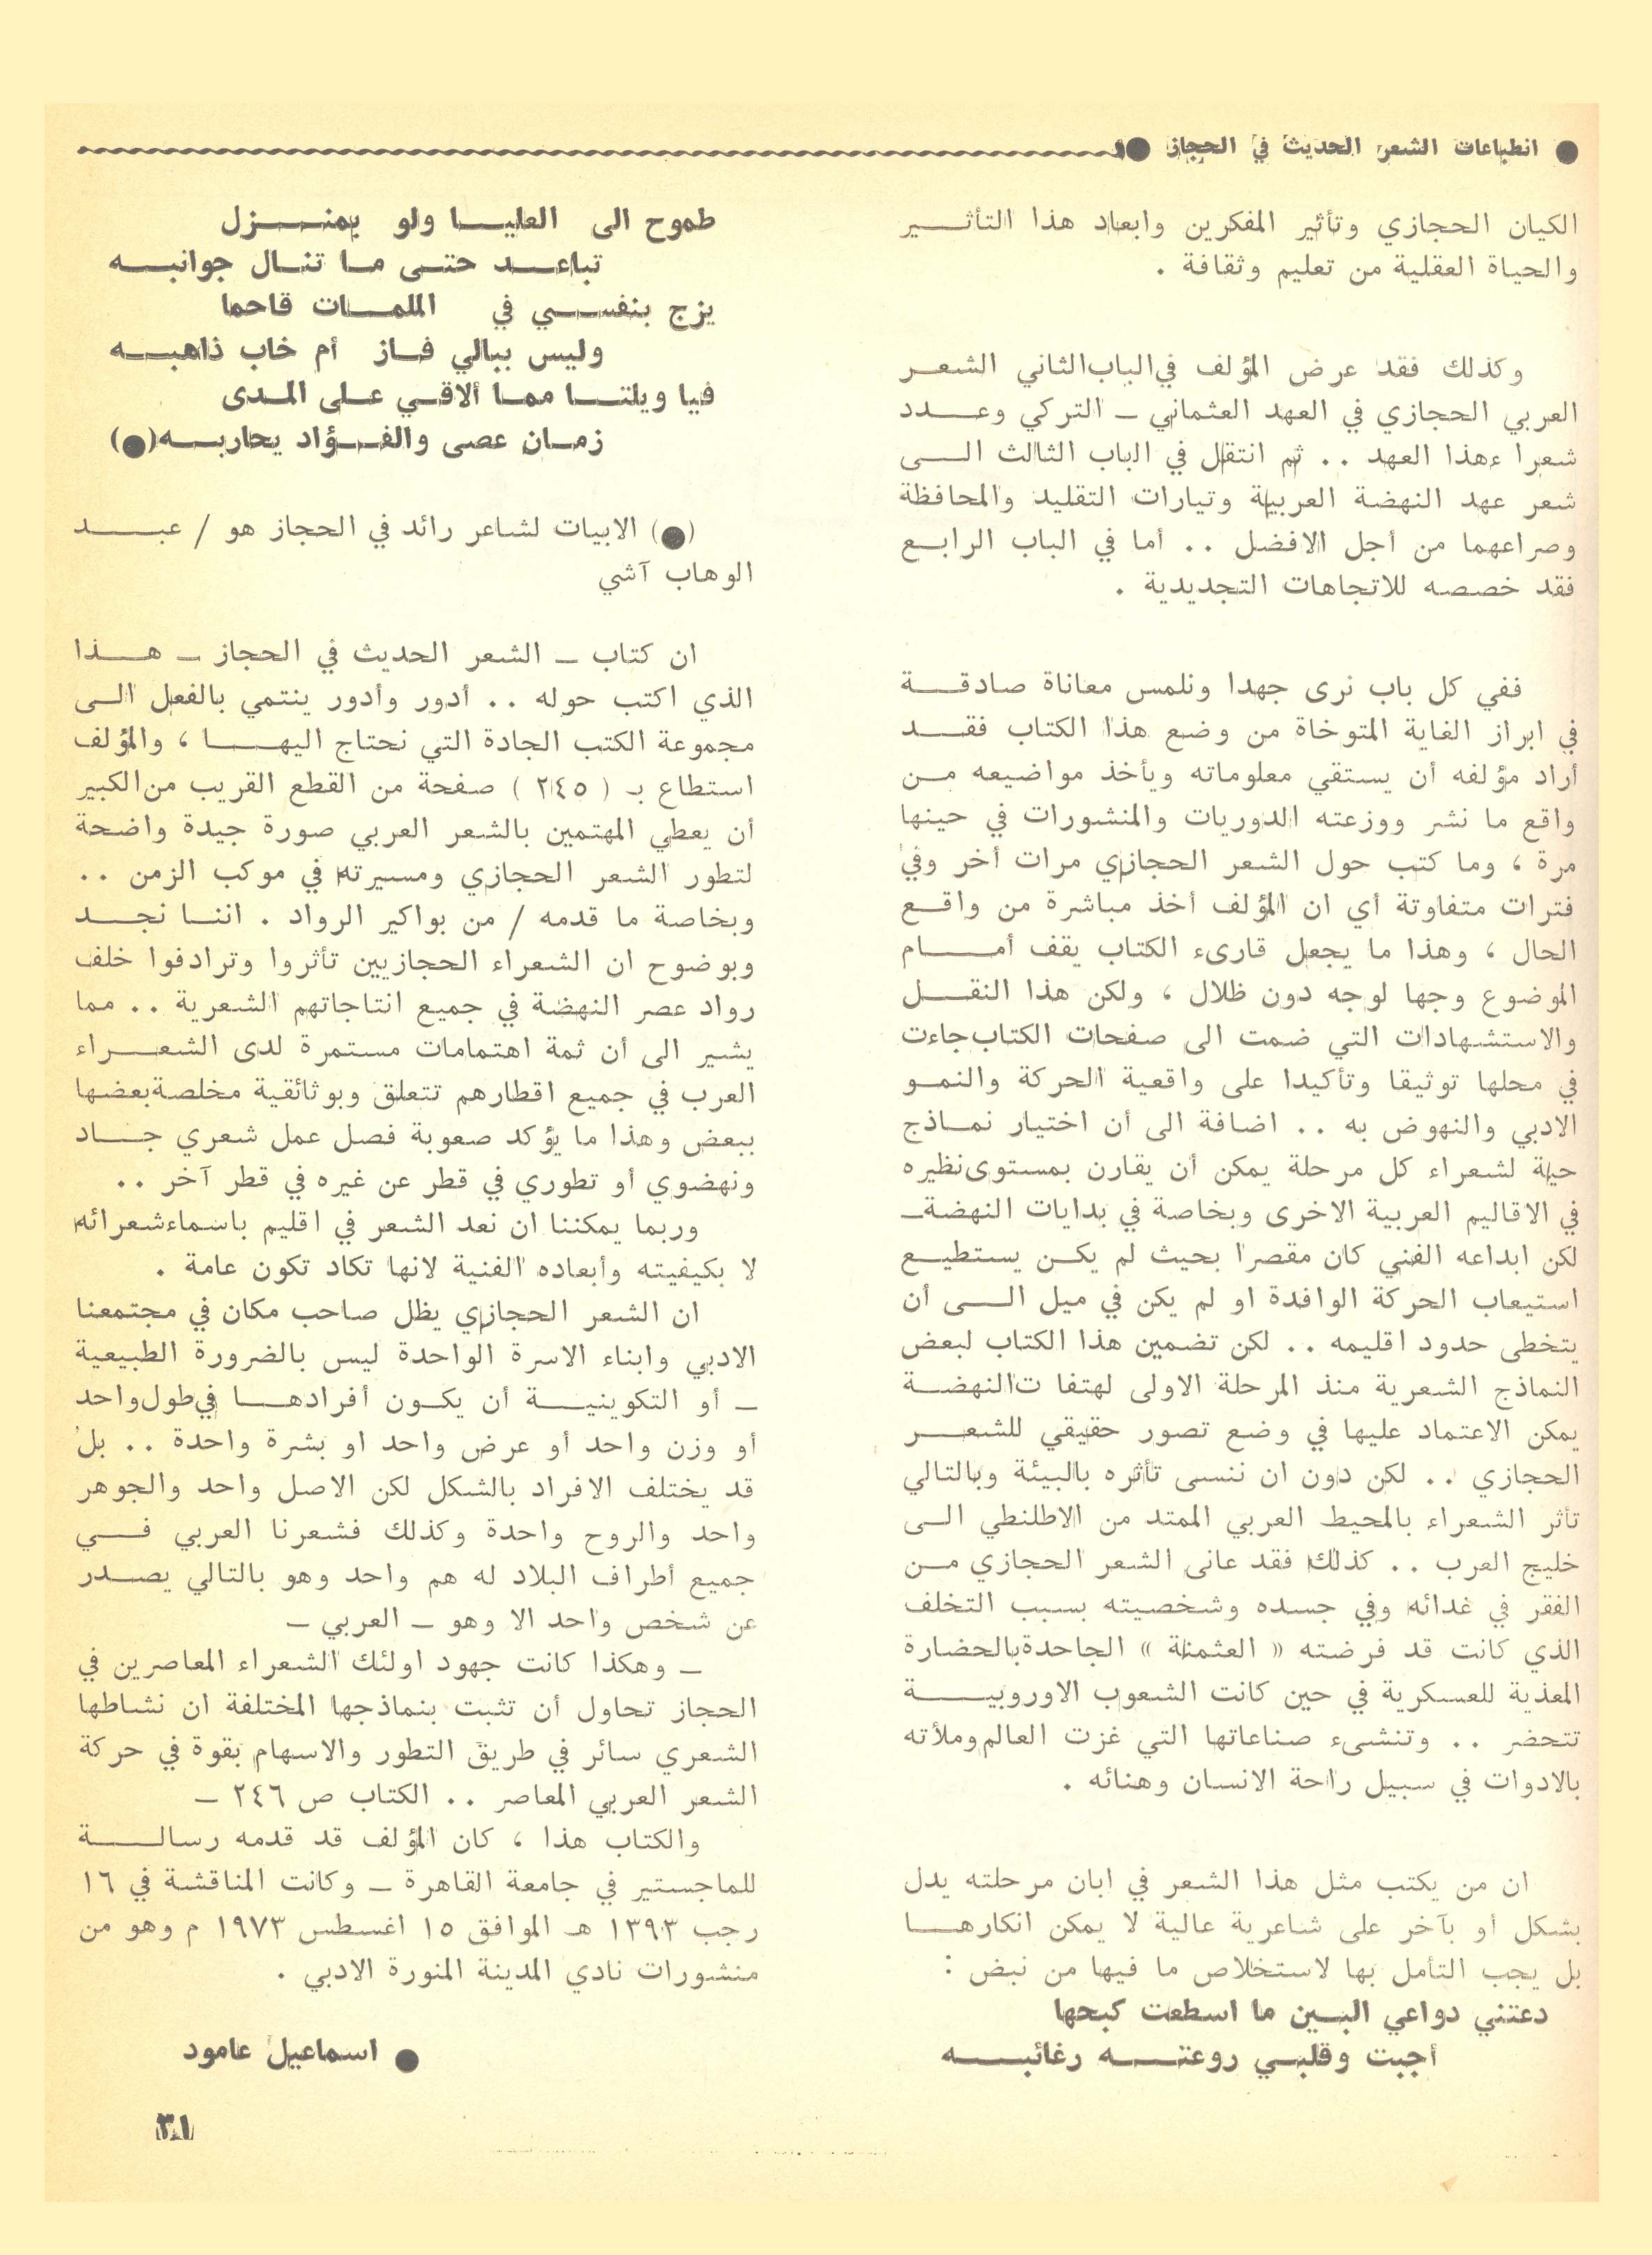 ● انطباعات الشعر الحديث في الحجاز ●
الكيان الحجازي وتأثير المفكرين وابعاد هذا التأثير
والحياة العقلية من تعليم وثقافة .
وكذلك فقد عرض المؤلف في الباب الثاني الشعر
العربي الحجازي في العهد العثماني ـ التركي وعدد
شعرا ءهذا العهد .. ثم انتقل في الباب الثالث الى
شعر عهد النهضة العربية وتيارات التقليد والمحافظة
وصراعهما من أجل الافضل .. أما في الباب الرابع
فقد خصصه للاتجاهات التجديدية .
ففي كل باب نرى جهدا ونلمس معاناة صادقة
في ابراز الغاية المتوخاة من وضع هذا الكتاب فقد
أراد مؤلفه أن يستقي معلوماته ويأخذ مواضيعه من
واقع ما نشر ووزعته الدوريات والمنشورات في حينها
مرة ، وما كتب حول الشعر الحجازي مرات أخر وفي
فترات متفاوتة أي ان المؤلف أخذ مباشرة من واقع
الحال ، وهذا ما يجعل قارىء الكتاب يقف أمام
الموضوع وجها لوجه دون ظلال ، ولكن هذا النقل
والاستشهادات التي ضمت الى صفحات الكتاب جاءت
في محلها توثيقا وتأكيدا على واقعية الحركة والنمو
الادبي والنهوض به .. اضافة الى أن اختيار نماذج
حية لشعراء كل مرحلة يمكن أن يقارن بمستوى نظيره
في الاقاليم العربية الاخرى وبخاصة في بدايات النهضة ـ
لكن ابداعه الفني كان مقصرا بحيث لم يكن يستطيع
استيعاب الحركة الوافدة او لم يكن في ميل الى أن
يتخطى حدود اقليمه .. لكن تضمين هذا الكتاب لبعض
النماذج الشعرية منذ المرحلة الاولى لهتفا ت النهضة
يمكن الاعتماد عليها في وضع تصور حقيقي للشعر
الحجازي .. لكن دون ان ننسى تأثره بالبيئة وبالتالي
تأثر الشعراء بالمحيط العربي الممتد من الاطلنطي الى
خليج العرب .. كذلك فقد عانى الشعر الحجازي من
الفقر في غدائه وفي جسده وشخصيته بسبب التخلف
الذي كانت قد فرضته « العثمنة » الجاحدة بالحضارة
المعذية للعسكرية في حين كانت الشعوب الاوروبية
تتحضر .. وتنشىء صناعاتها التي غزت العالم وملأته
بالادوات في سبيل راحة الانسان وهنائه .
ان من يكتب مثل هذا الشعر في ابان مرحلته يدل
بشكل أو بآخر على شاعرية عالية لا يمكن انكارها
بل يجب التأمل بها لاستخلاص ما فيها من نبض :
دعتني دواعي البين ما اسطعت كبحها
أجبت وقلبي روعته رغائبه
طموح الى العليا ولو بمنزل
تباعد حتى ما تنال جوانبه
يزج بنفسي في الملمات قاحما
وليس ببالي فاز أم خاب ذاهبه
فيا ويلتا مما ألاقي على المدى
زمان عصى والفؤاد يحاربه(●)
(●) الابيات لشاعر رائد في الحجاز هو / عبد
الوهاب آشي
ان كتاب ـ الشعر الحديث في الحجاز ـ هذا
الذي اكتب حوله .. أدور وأدور ينتمي بالفعل الى
مجموعة الكتب الجادة التي نحتاج اليها ، والمؤلف
استطاع بـ ( ٢٤٥ ) صفحة من القطع القريب من الكبير
أن يعطي المهتمين بالشعر العربي صورة جيدة واضحة
لتطور الشعر الحجازي ومسيرته في موكب الزمن ..
وبخاصة ما قدمه / من بواكير الرواد . اننا نجد
وبوضوح ان الشعراء الحجازيين تأثروا وترادفوا خلف
رواد عصر النهضة في جميع انتاجاتهم الشعرية .. مما
يشير الى أن ثمة اهتمامات مستمرة لدى الشعراء
العرب في جميع اقطارهم تتعلق وبوثائقية مخلصة بعضها
ببعض وهذا ما يؤكد صعوبة فصل عمل شعري جاد
ونهضوي أو تطوري في قطر عن غيره في قطر آخر ..
وربما يمكننا ان نعد الشعر في اقليم باسماء شعرائه
لا بكيفيته وأبعاده الفنية لانها تكاد تكون عامة .
ان الشعر الحجازي يظل صاحب مكان في مجتمعنا
الادبي وابناء الاسرة الواحدة ليس بالضرورة الطبيعية
ـ أو التكوينية أن يكون أفرادها في طول واحد
أو وزن واحد أو عرض واحد او بشرة واحدة .. بل
قد يختلف الافراد بالشكل لكن الاصل واحد والجوهر
واحد والروح واحدة وكذلك فشعرنا العربي في
جميع أطراف البلاد له هم واحد وهو بالتالي يصدر
عن شخص واحد الا وهو ـ العربي ـ
ـ وهكذا كانت جهود اولئك الشعراء المعاصرين في
الحجاز تحاول أن تثبت بنماذجها المختلفة ان نشاطها
الشعري سائر في طريق التطور والاسهام بقوة في حركة
الشعر العربي المعاصر .. الكتاب ص ٢٤٦ ـ
والكتاب هذا ، كان المؤلف قد قدمه رسالة
للماجستير في جامعة القاهرة ـ وكانت المناقشة في ١٦
رجب ١٣٩٣ هـ الموافق ١٥ اغسطس ١٩٧٣ م وهو من
منشورات نادي المدينة المنورة الادبي .
● اسماعيل عامود
٣١